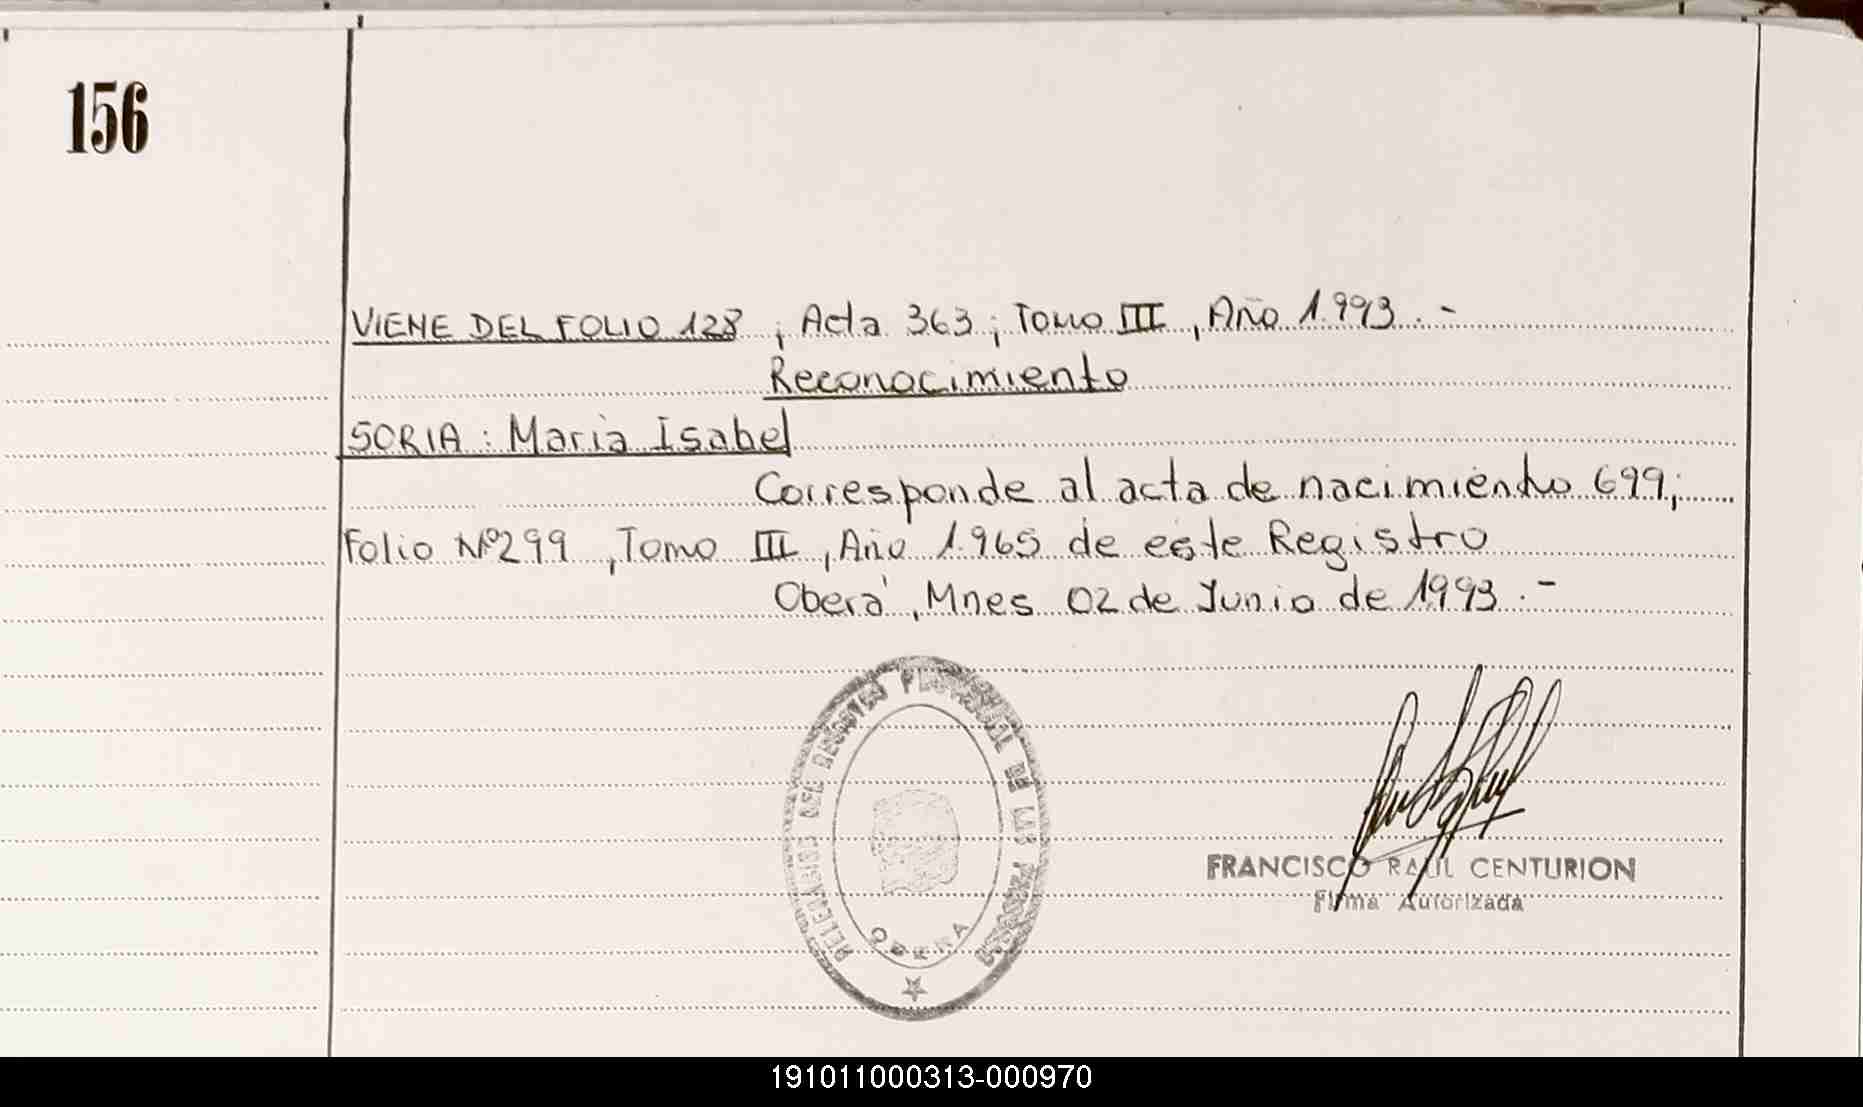 156
VIENE DEL FOLIO 128 ; Acta 363 ; Tomo III , Año 1.993 . -
Reconocimiento
SORIA : Maria Isabel
Corresponde al acta de nacimiento 699 ;
Folio Nº 299 , Tomo III , Año 1.965 de este Registro
Oberá , Mnes 02 de Junio de 1993 . -
DEL REGISTRO PROVINCIAL DE LAS PERSONAS
OBERA
FRANCISCO RAUL CENTURION
Firma Autorizada
191011000313-000970